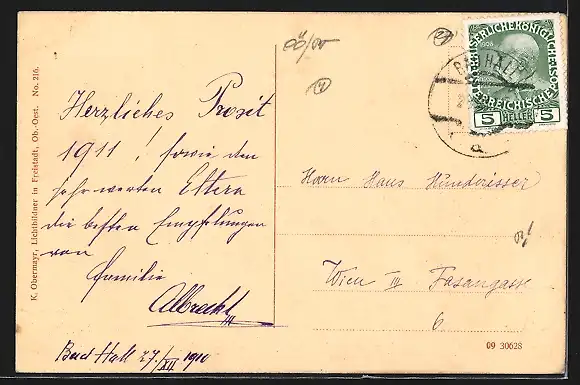 K. Obermayr, Lichtbildner in Freistadt, Ob.-Oest. No. 216.
Herzliches Prosit
1911! sowie den
sehr werten Eltern
die besten Empfelungen
von
Familie
Albrecht
Bad Hall 27./XII 1910
OÖ/
KAISERLICHE KÖNIGLICHE ÖSTERREICHISCHE POST
1908
5 HELLER 5
BAD HALL
a
Herrn Hans
Wien III Fasangasse
6
09 30628